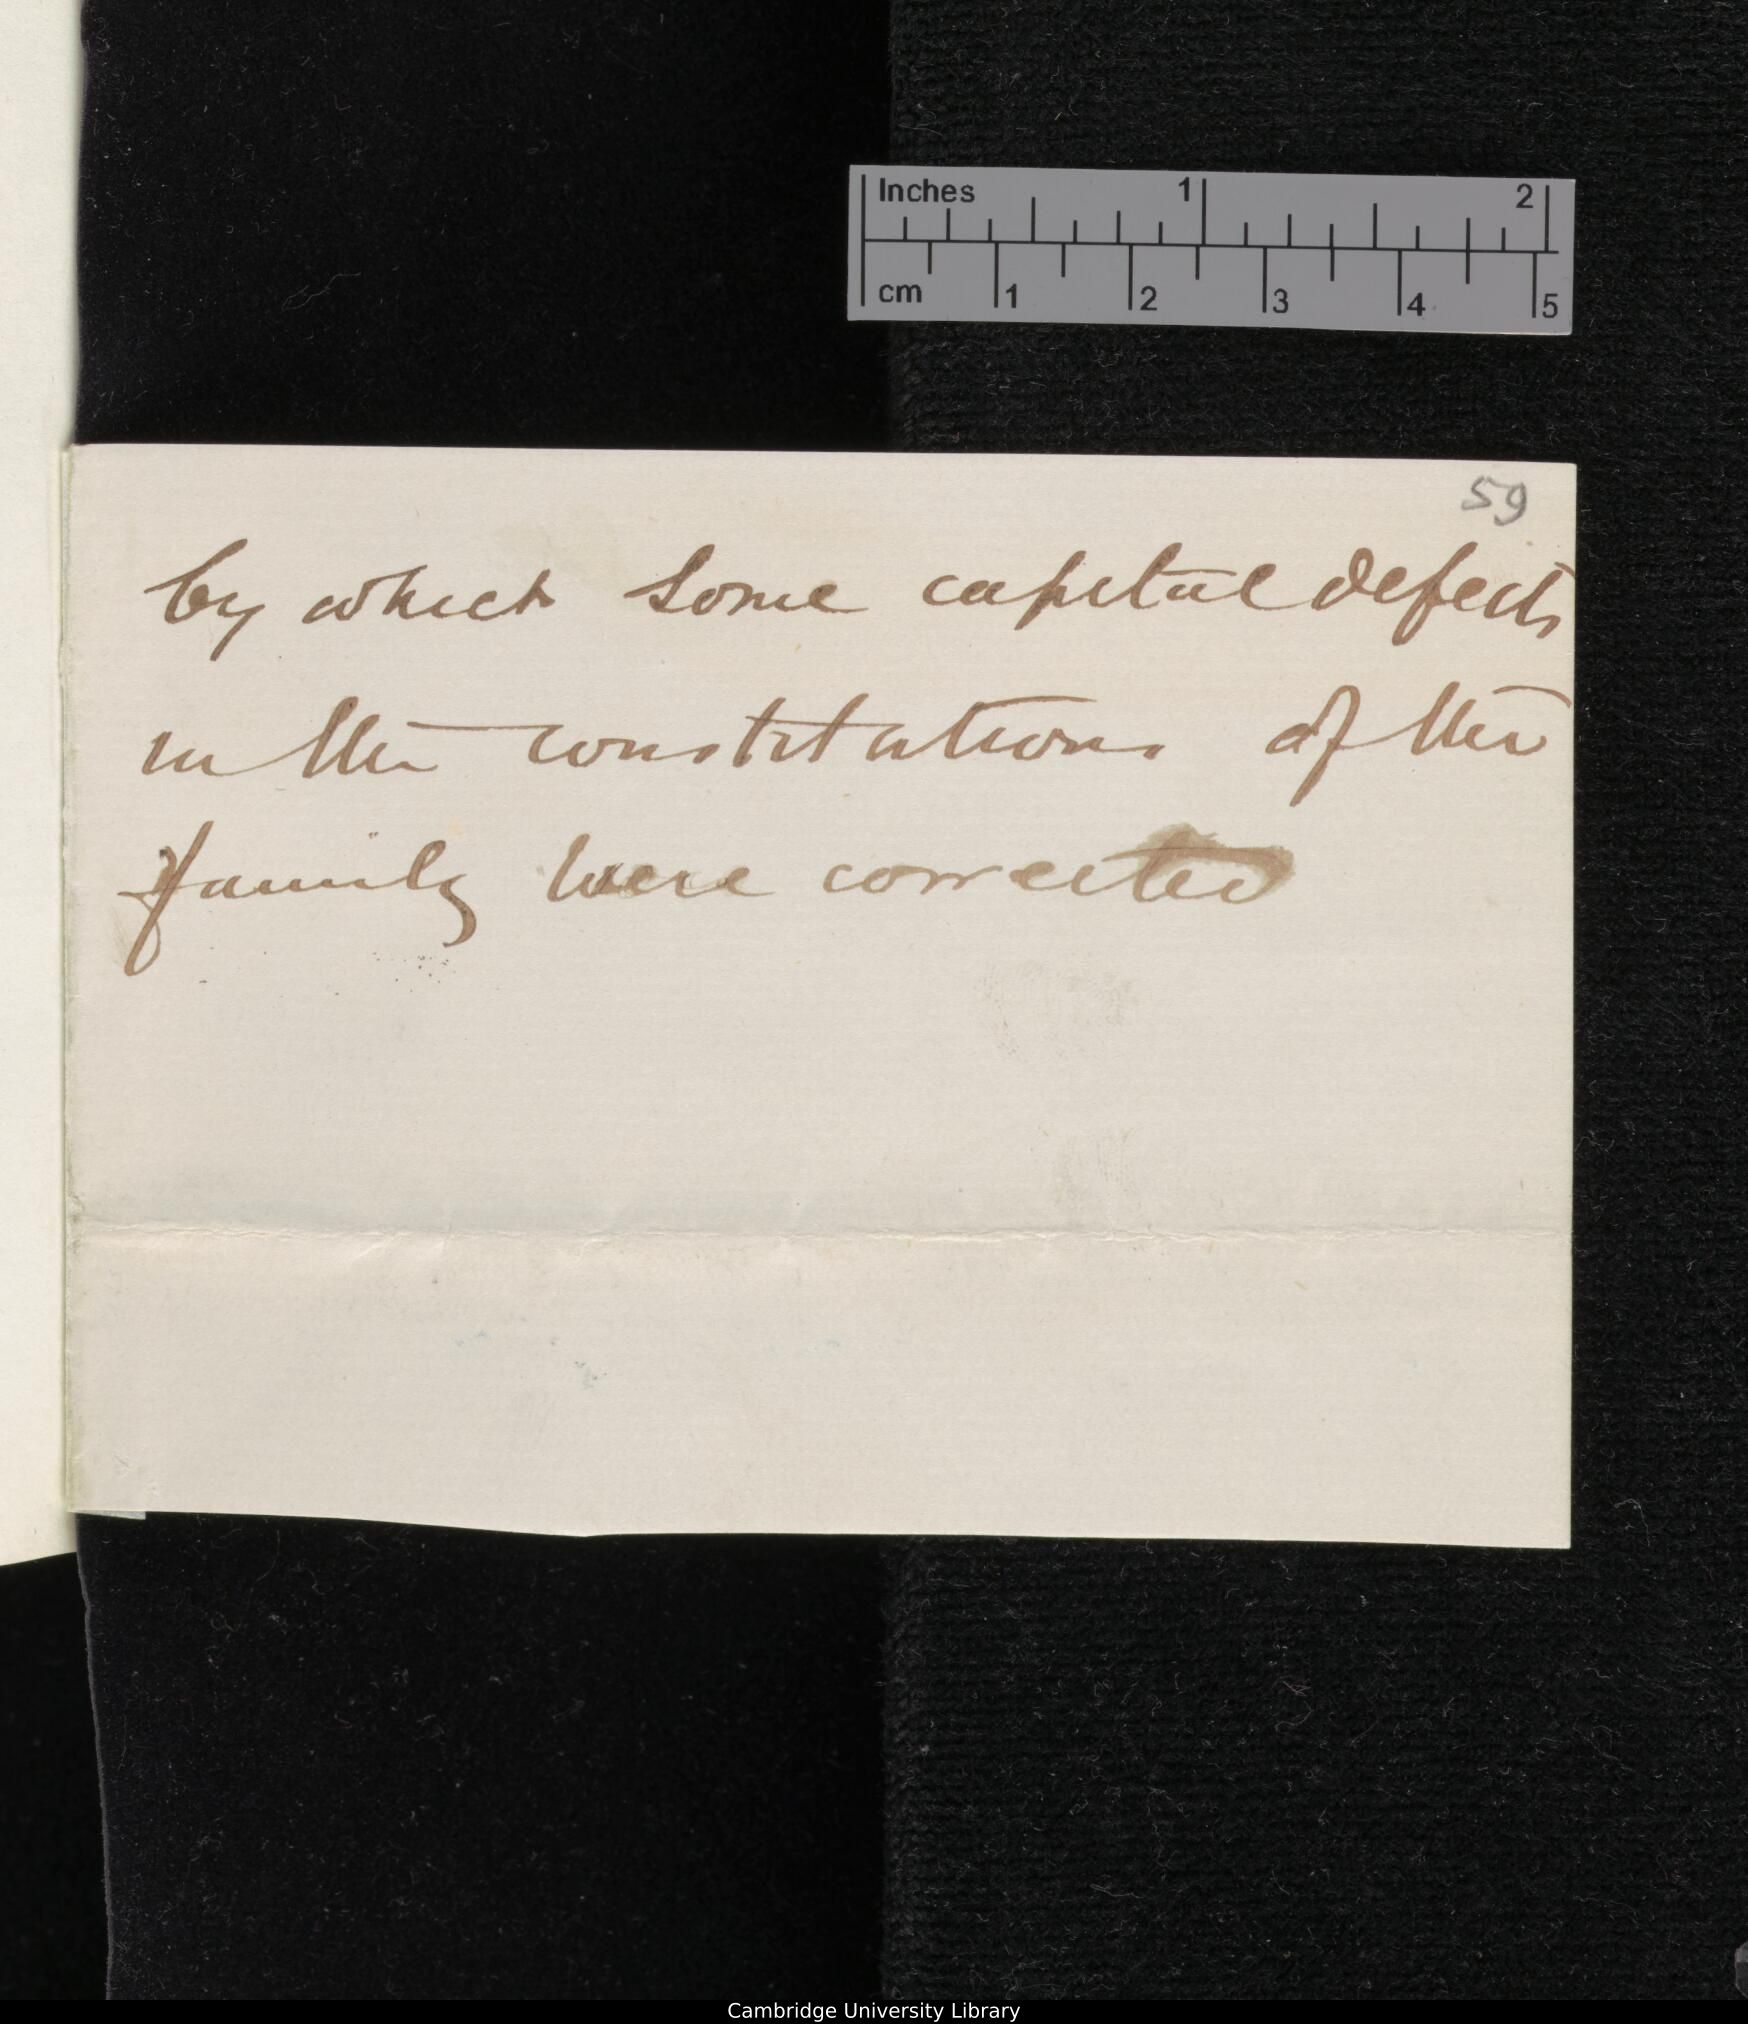 Inches 1 2
cm 1 2 3 4 5
59
by which some capital defects
in the constitutions of the
family were corrected
Cambridge University Library